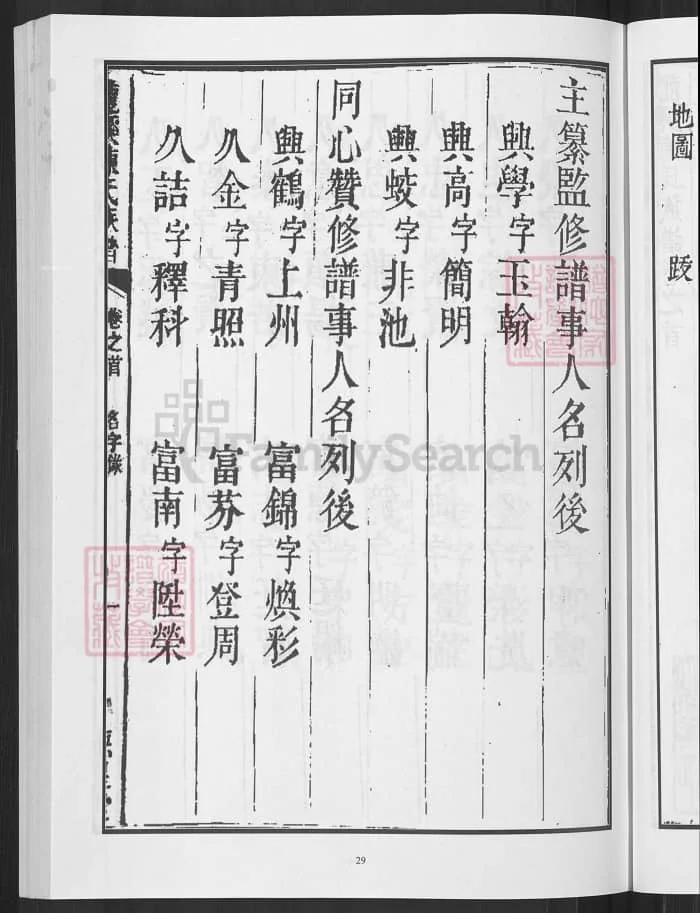 地圖　　跋
主纂監修譜事人名列後
興學字玉翰
興高字簡明
興蛟字非池
同心贊修譜事人名列後
興鶴字上州　　富錦字煥彩
久金字青照　　富芬字登周
久詰字釋科　　富南字陞榮
陳氏族譜　卷之首　名字錄　一
FamilySearch
29